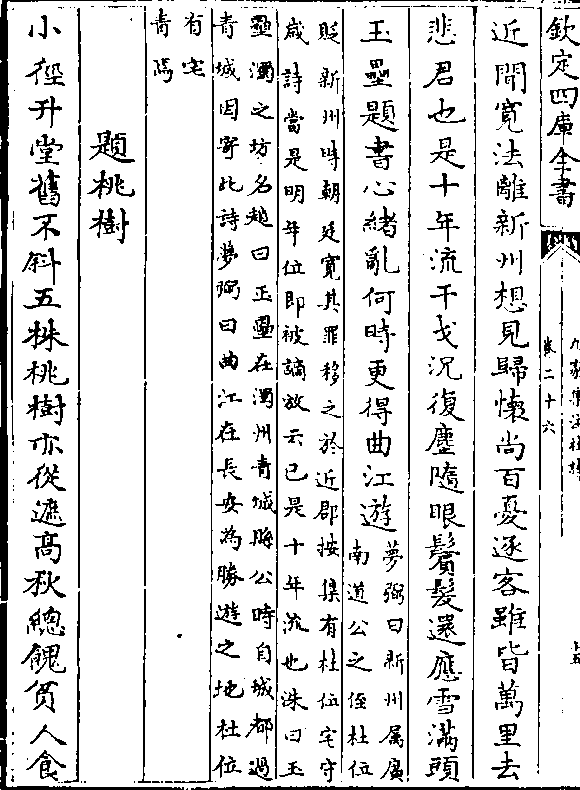 欽定四庫全書
卷二十六
近聞寛法離新州想見歸懷尚百憂逐客雖皆萬里去
悲君也是十年流干戈況復塵隨眼鬢髮還應雪滿頭
玉壘題書心緒亂何時更得曲江遊
夢弼曰新州属廣
南道公之侄杜位
貶新州時朝廷寛其罪移之於近郡按集有杜位宅守
歲詩當是明年位即被謫放云已是十年流也洙曰玉
壘濁之坊名趙曰玉壘在濁州青城縣公時自城都過
青城因寄此詩夢弼曰曲江在長安為勝遊之地杜位
有宅
青焉
題桃樹
小徑升堂舊不斜五株桃樹亦從遮高秋總餽貧人食